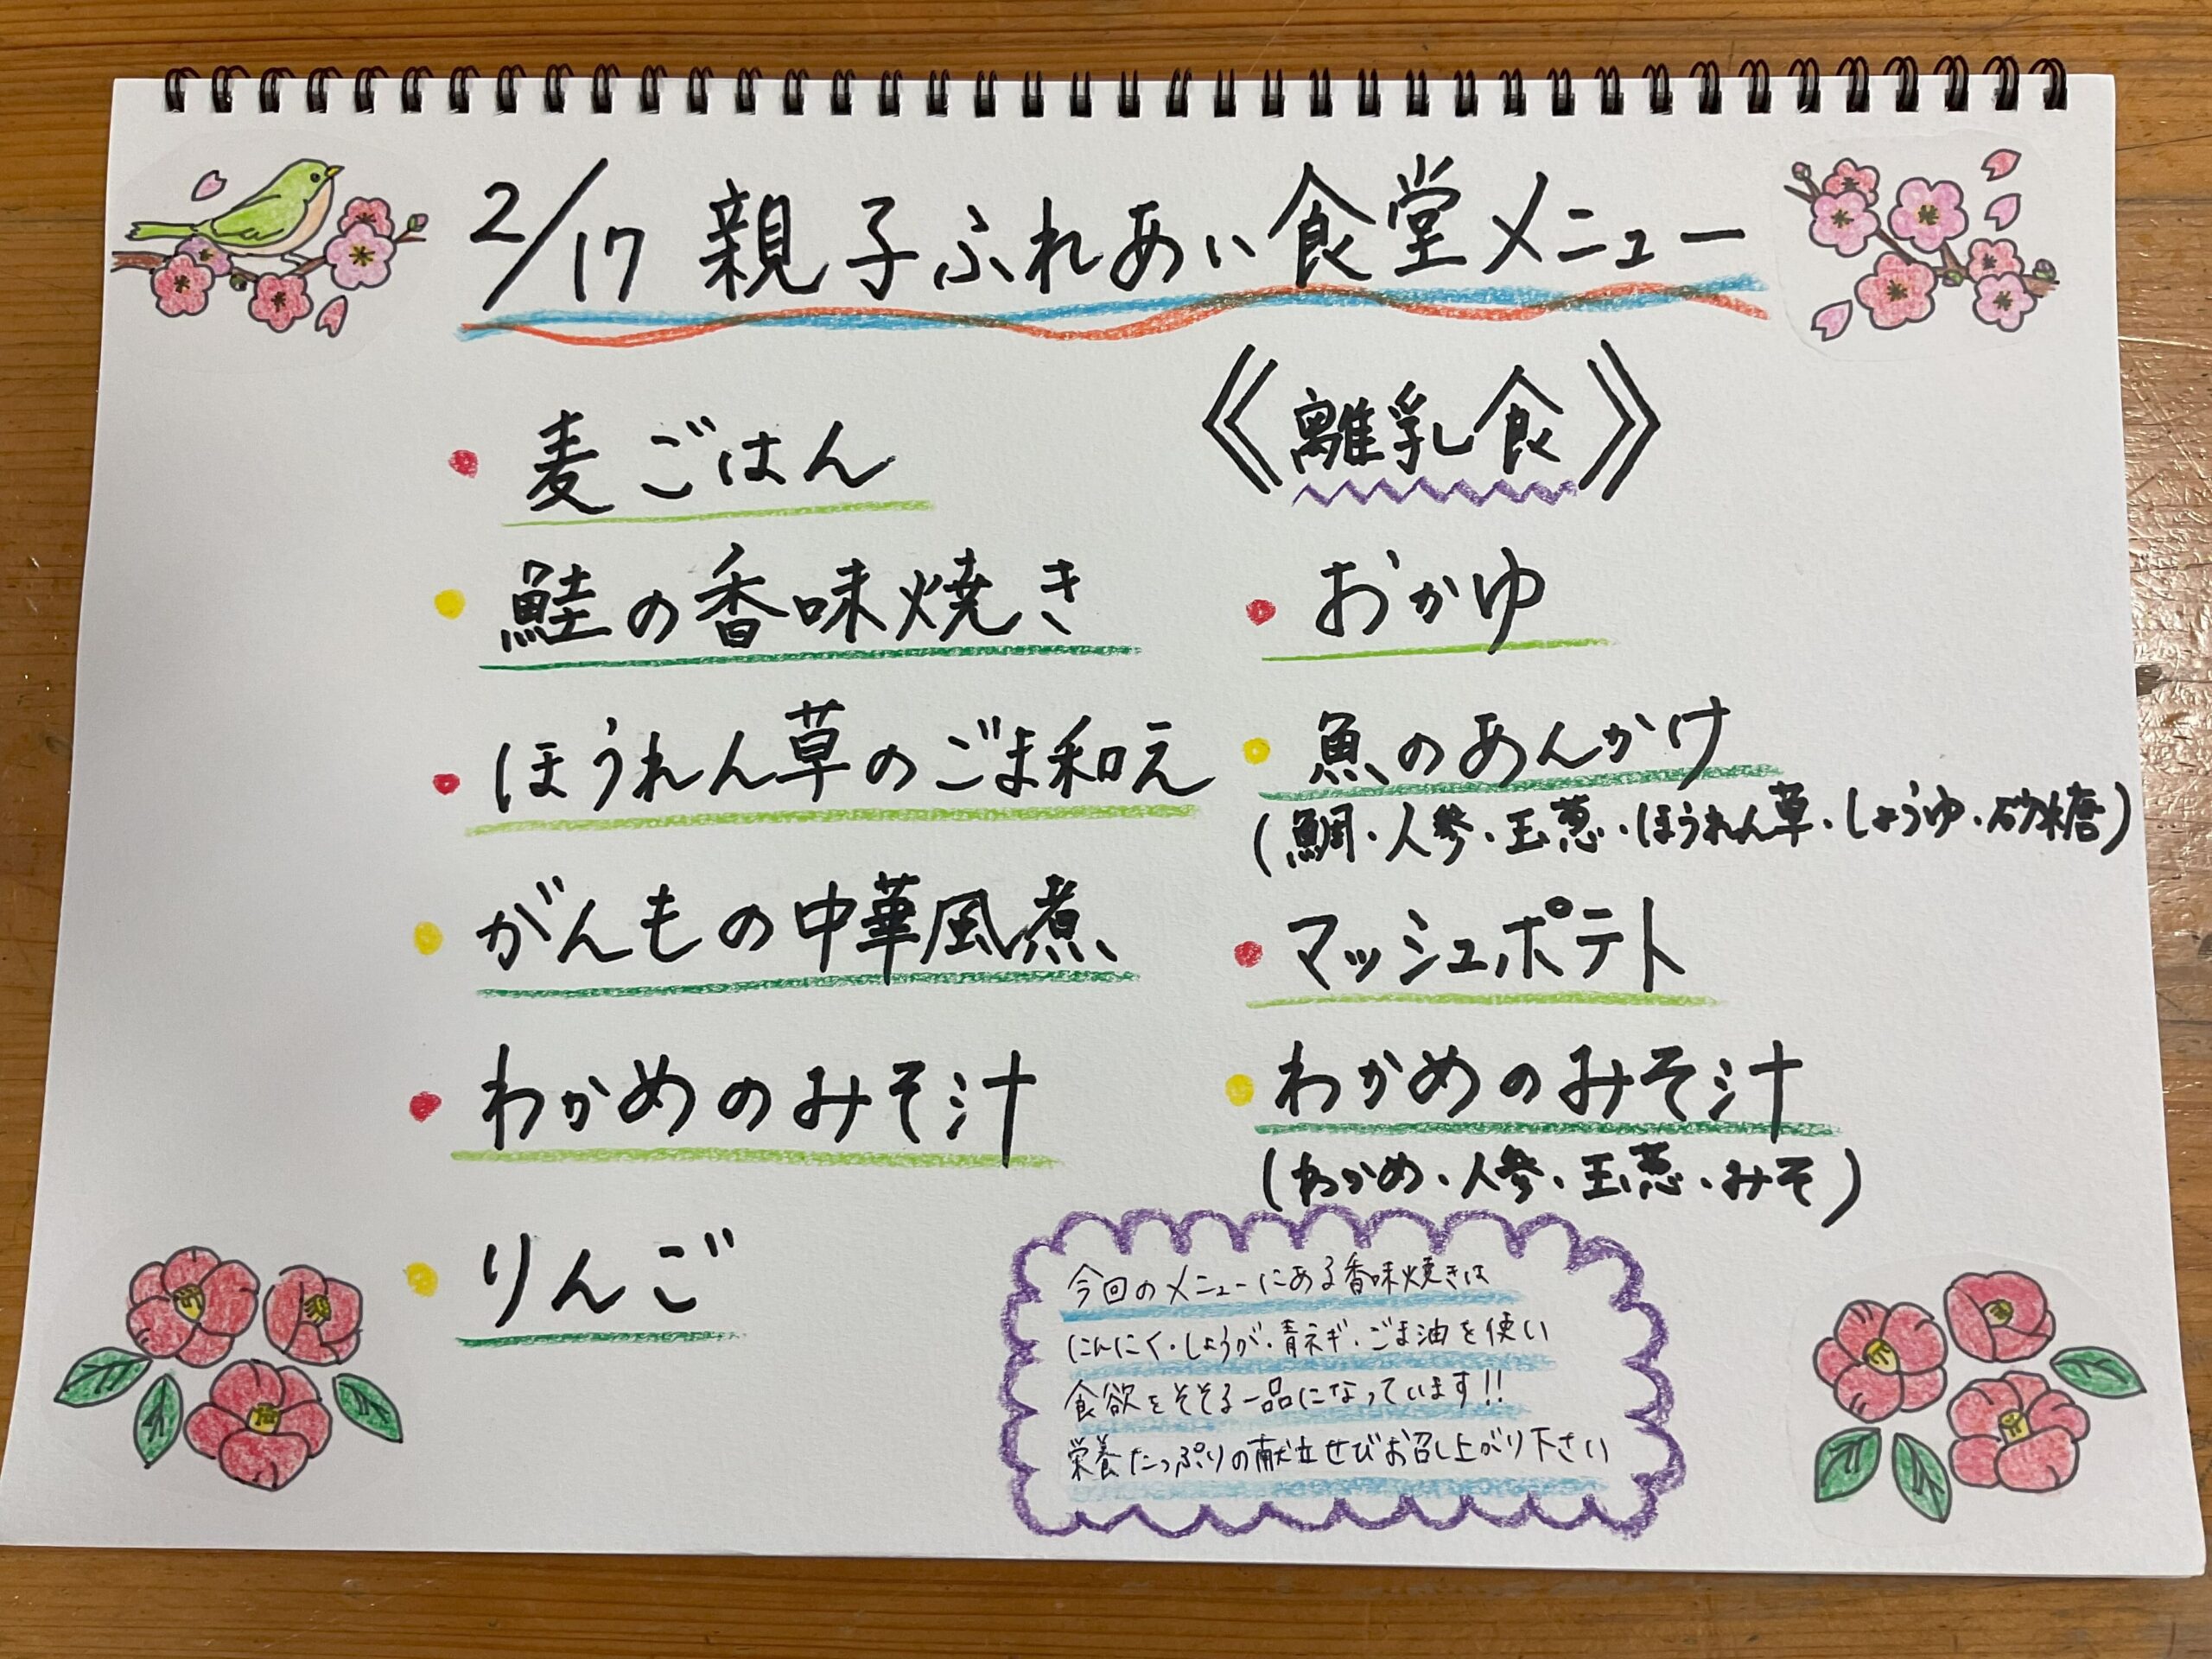 2/17 親子ふれあい食堂メニュー
・麦ごはん
・鮭の香味焼き
・ほうれん草のごま和え
・がんもの中華風煮
・わかめのみそ汁
・りんご
《離乳食》
・おかゆ
・魚のあんかけ
(鯛・人参・玉葱・ほうれん草・しょうゆ・砂糖)
・マッシュポテト
・わかめのみそ汁
(わかめ・人参・玉葱・みそ)
今回のメニューにある香味焼きは
にんにく・しょうが・青ネギ・ごま油を使い
食欲をそそる一品になっています!!
栄養たっぷりの献立ぜひお召し上がり下さい